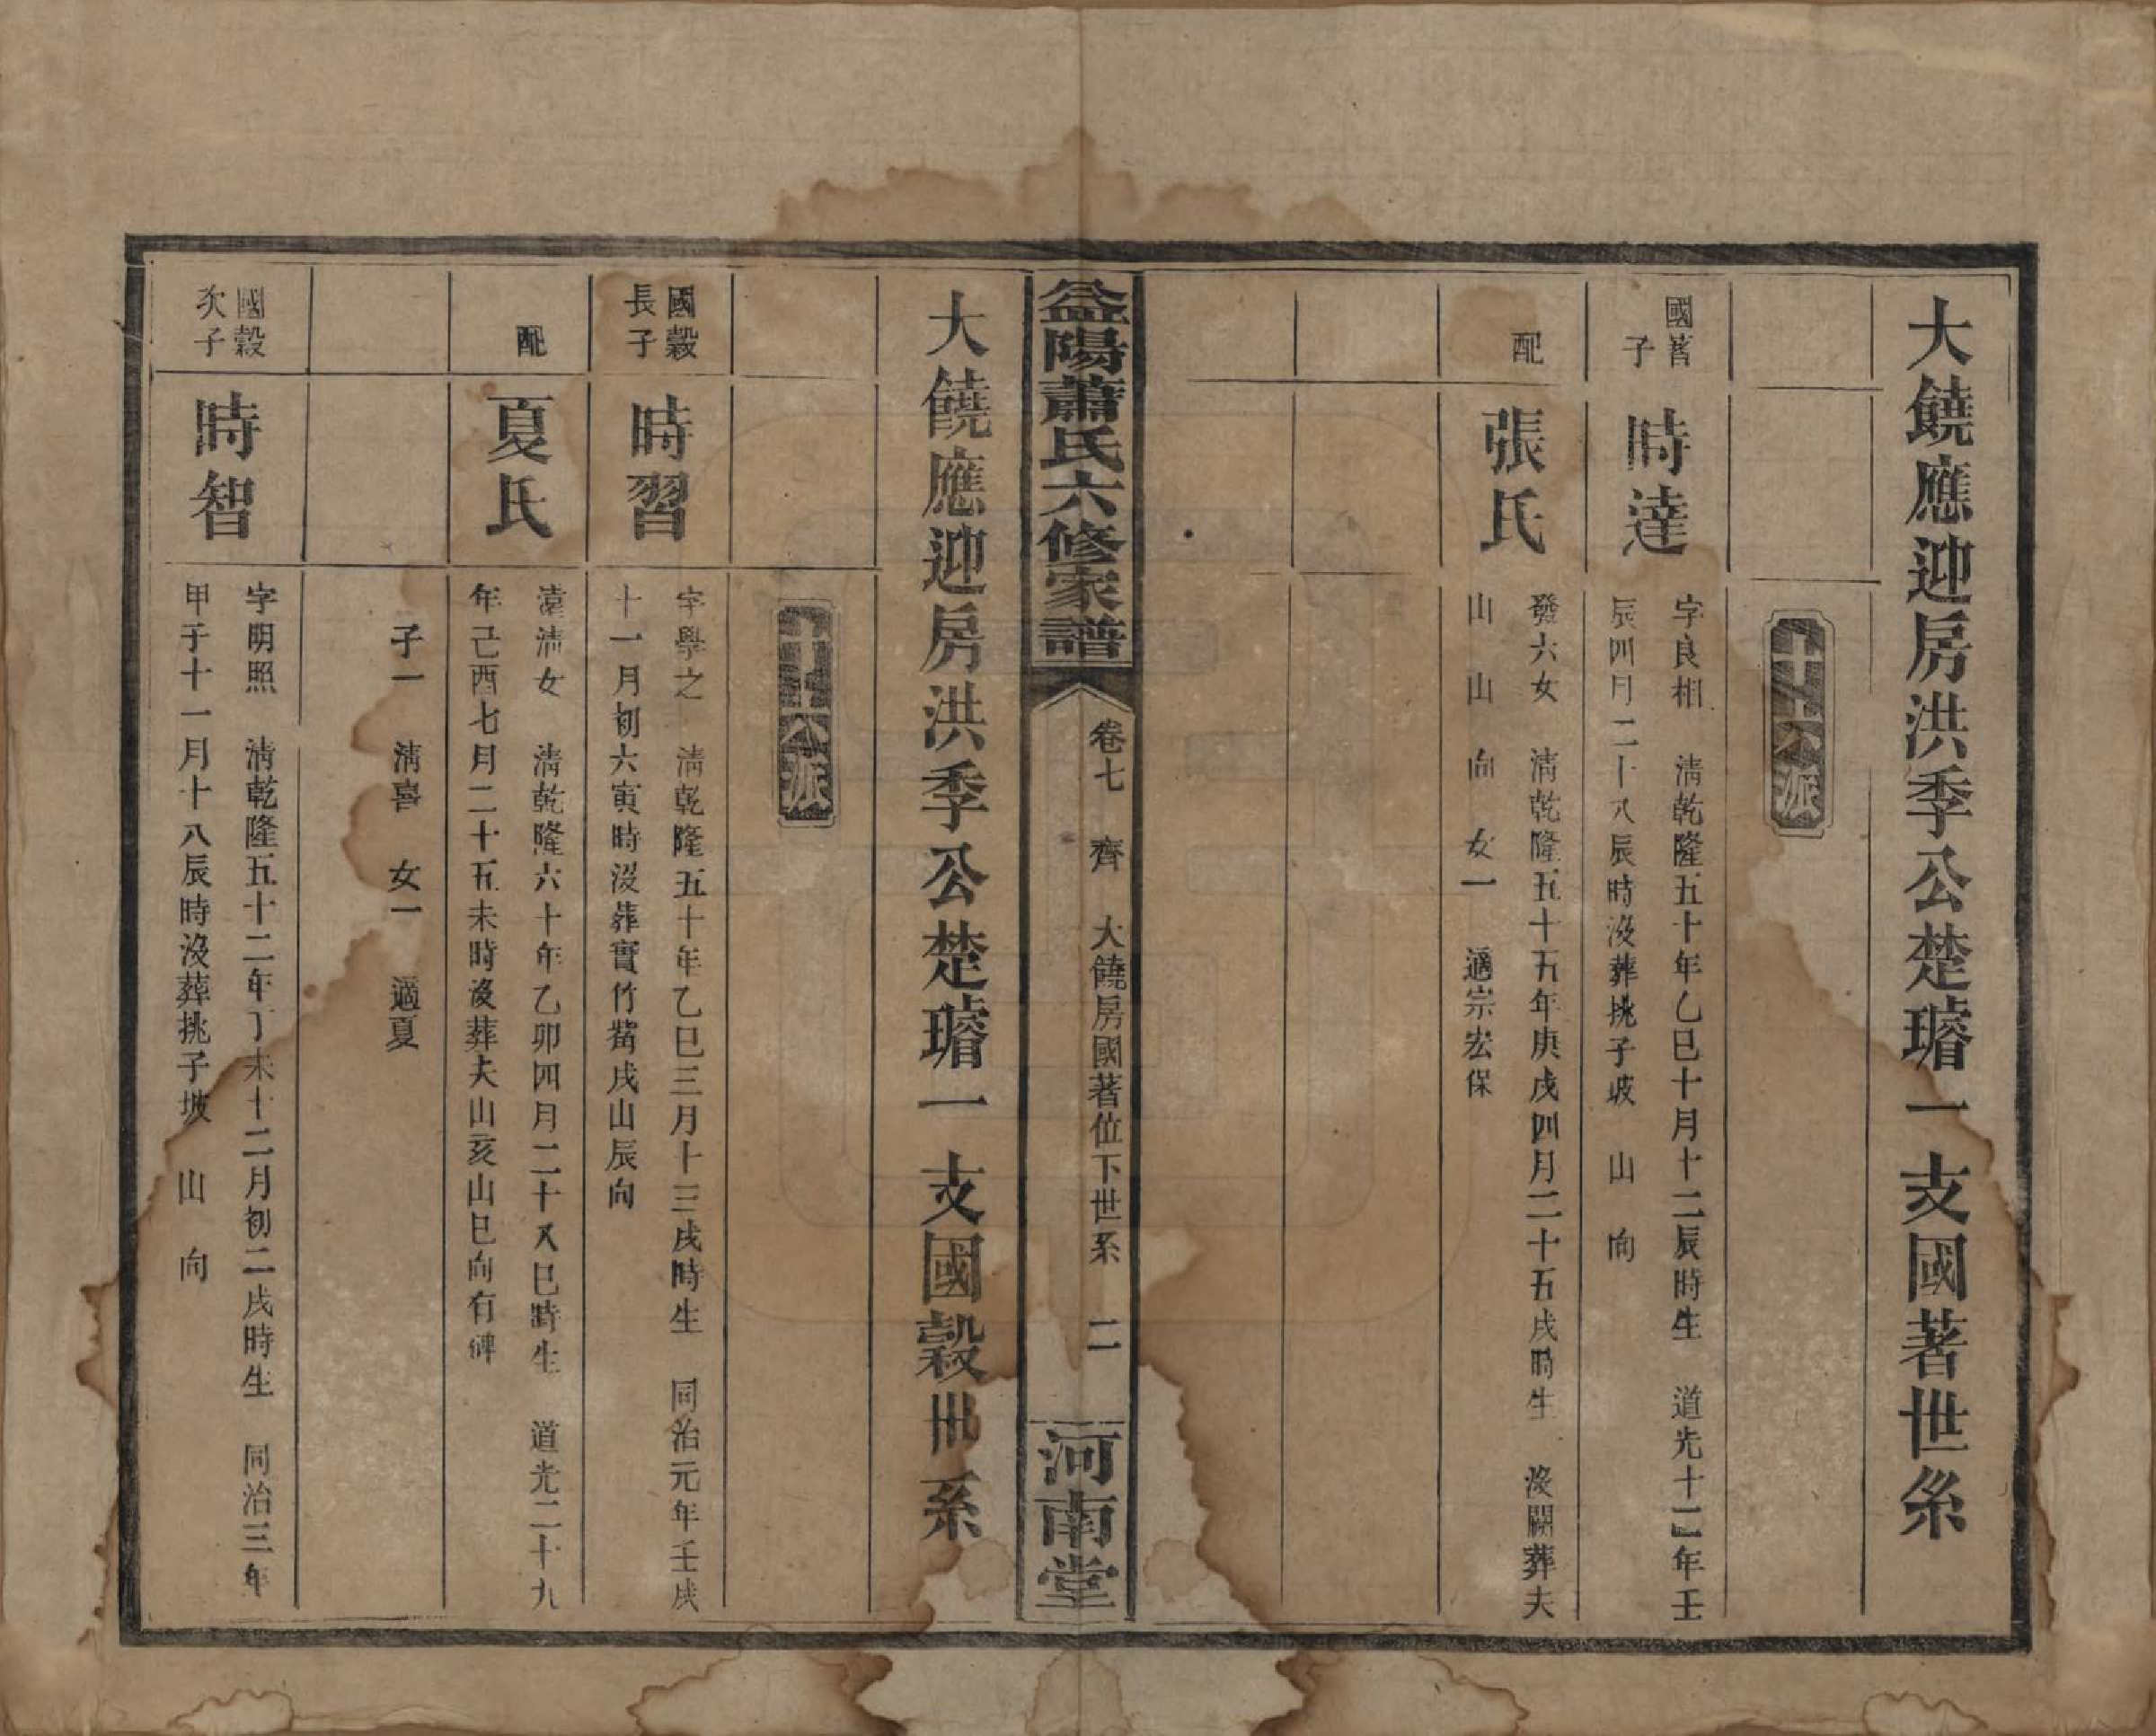 大饒應迎房洪季公楚璿一支國著世系
十七派
國著
子
時達
字良相 淸乾隆五十年乙巳十月十二辰時生 道光十二年壬
辰四月二十八辰時沒葬挑子坡 山 向
配
張氏
發六女 淸乾隆五十五年庚戌四月二十五戌時生 沒闕葬夫
山 山 向 女一 適宗宏保
益陽蕭氏六修家譜
卷七 齊 大饒房國著位下世系 二
河南堂
大饒應迎房洪季公楚璿一支國穀世系
國穀
長子
時習
字學之 淸乾隆五十年乙巳三月十三戌時生 同治元年壬戌
十一月初六寅時沒葬實竹觜戌山辰向
配
夏氏
淸女 淸乾隆六十年乙卯四月二十又巳時生 道光二十九
年己酉七月二十五未時沒葬夫山亥山巳向有碑
子一 淸喜 女一 適夏
國穀
次子
時智
字明照 淸乾隆五十二年丁未十二月初二戌時生 同治三年
甲子十一月十八辰時沒葬挑子坡 山 向